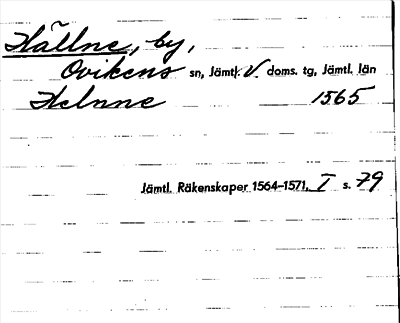 Hällne, by,
Ovikens sn, Jämtl. V. doms. tg, Jämtl. län
Helnne 1565
Jämtl. Räkenskaper 1564-1571, I s. 79